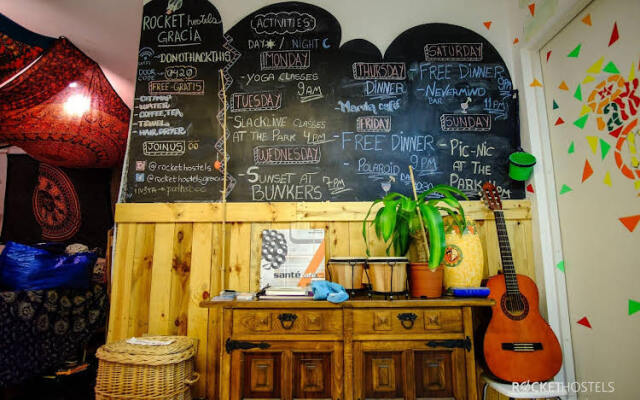 ROCKET hostels
GRACIA
DONOTHACKTHIS
DOOR CODE 0420
FREE-GRATIS
- CITYMAP
- WATER
- COFFEE, TEA
- TOWEL
- HAIR DRYER
JOIN US
@ROCKETHOSTELS
@rockethostelsgracia
ACTIVITIES
DAY NIGHT
MONDAY
-YOGA CLASSES
9AM
TUESDAY
SLACKLINE CLASSES
AT THE PARK 4PM
WEDNESDAY
-SUNSET AT
BUNKERS 7PM
THURSDAY
DINNER
Manila café
FRIDAY
-FREE DINNER
9PM
-POLAROID
BAR
SATURDAY
-FREE DINNER
9PM
-NEVERMIND
BAR 11PM
SUNDAY
-PIC-NIC
AT THE
PARK
santé
ROCKETHOSTELS